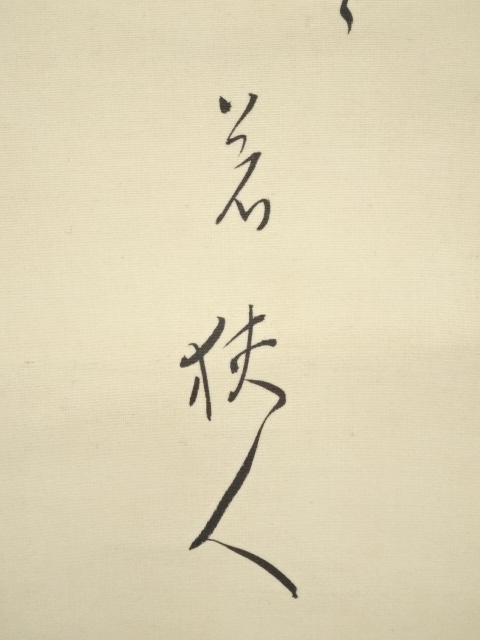 若狭人